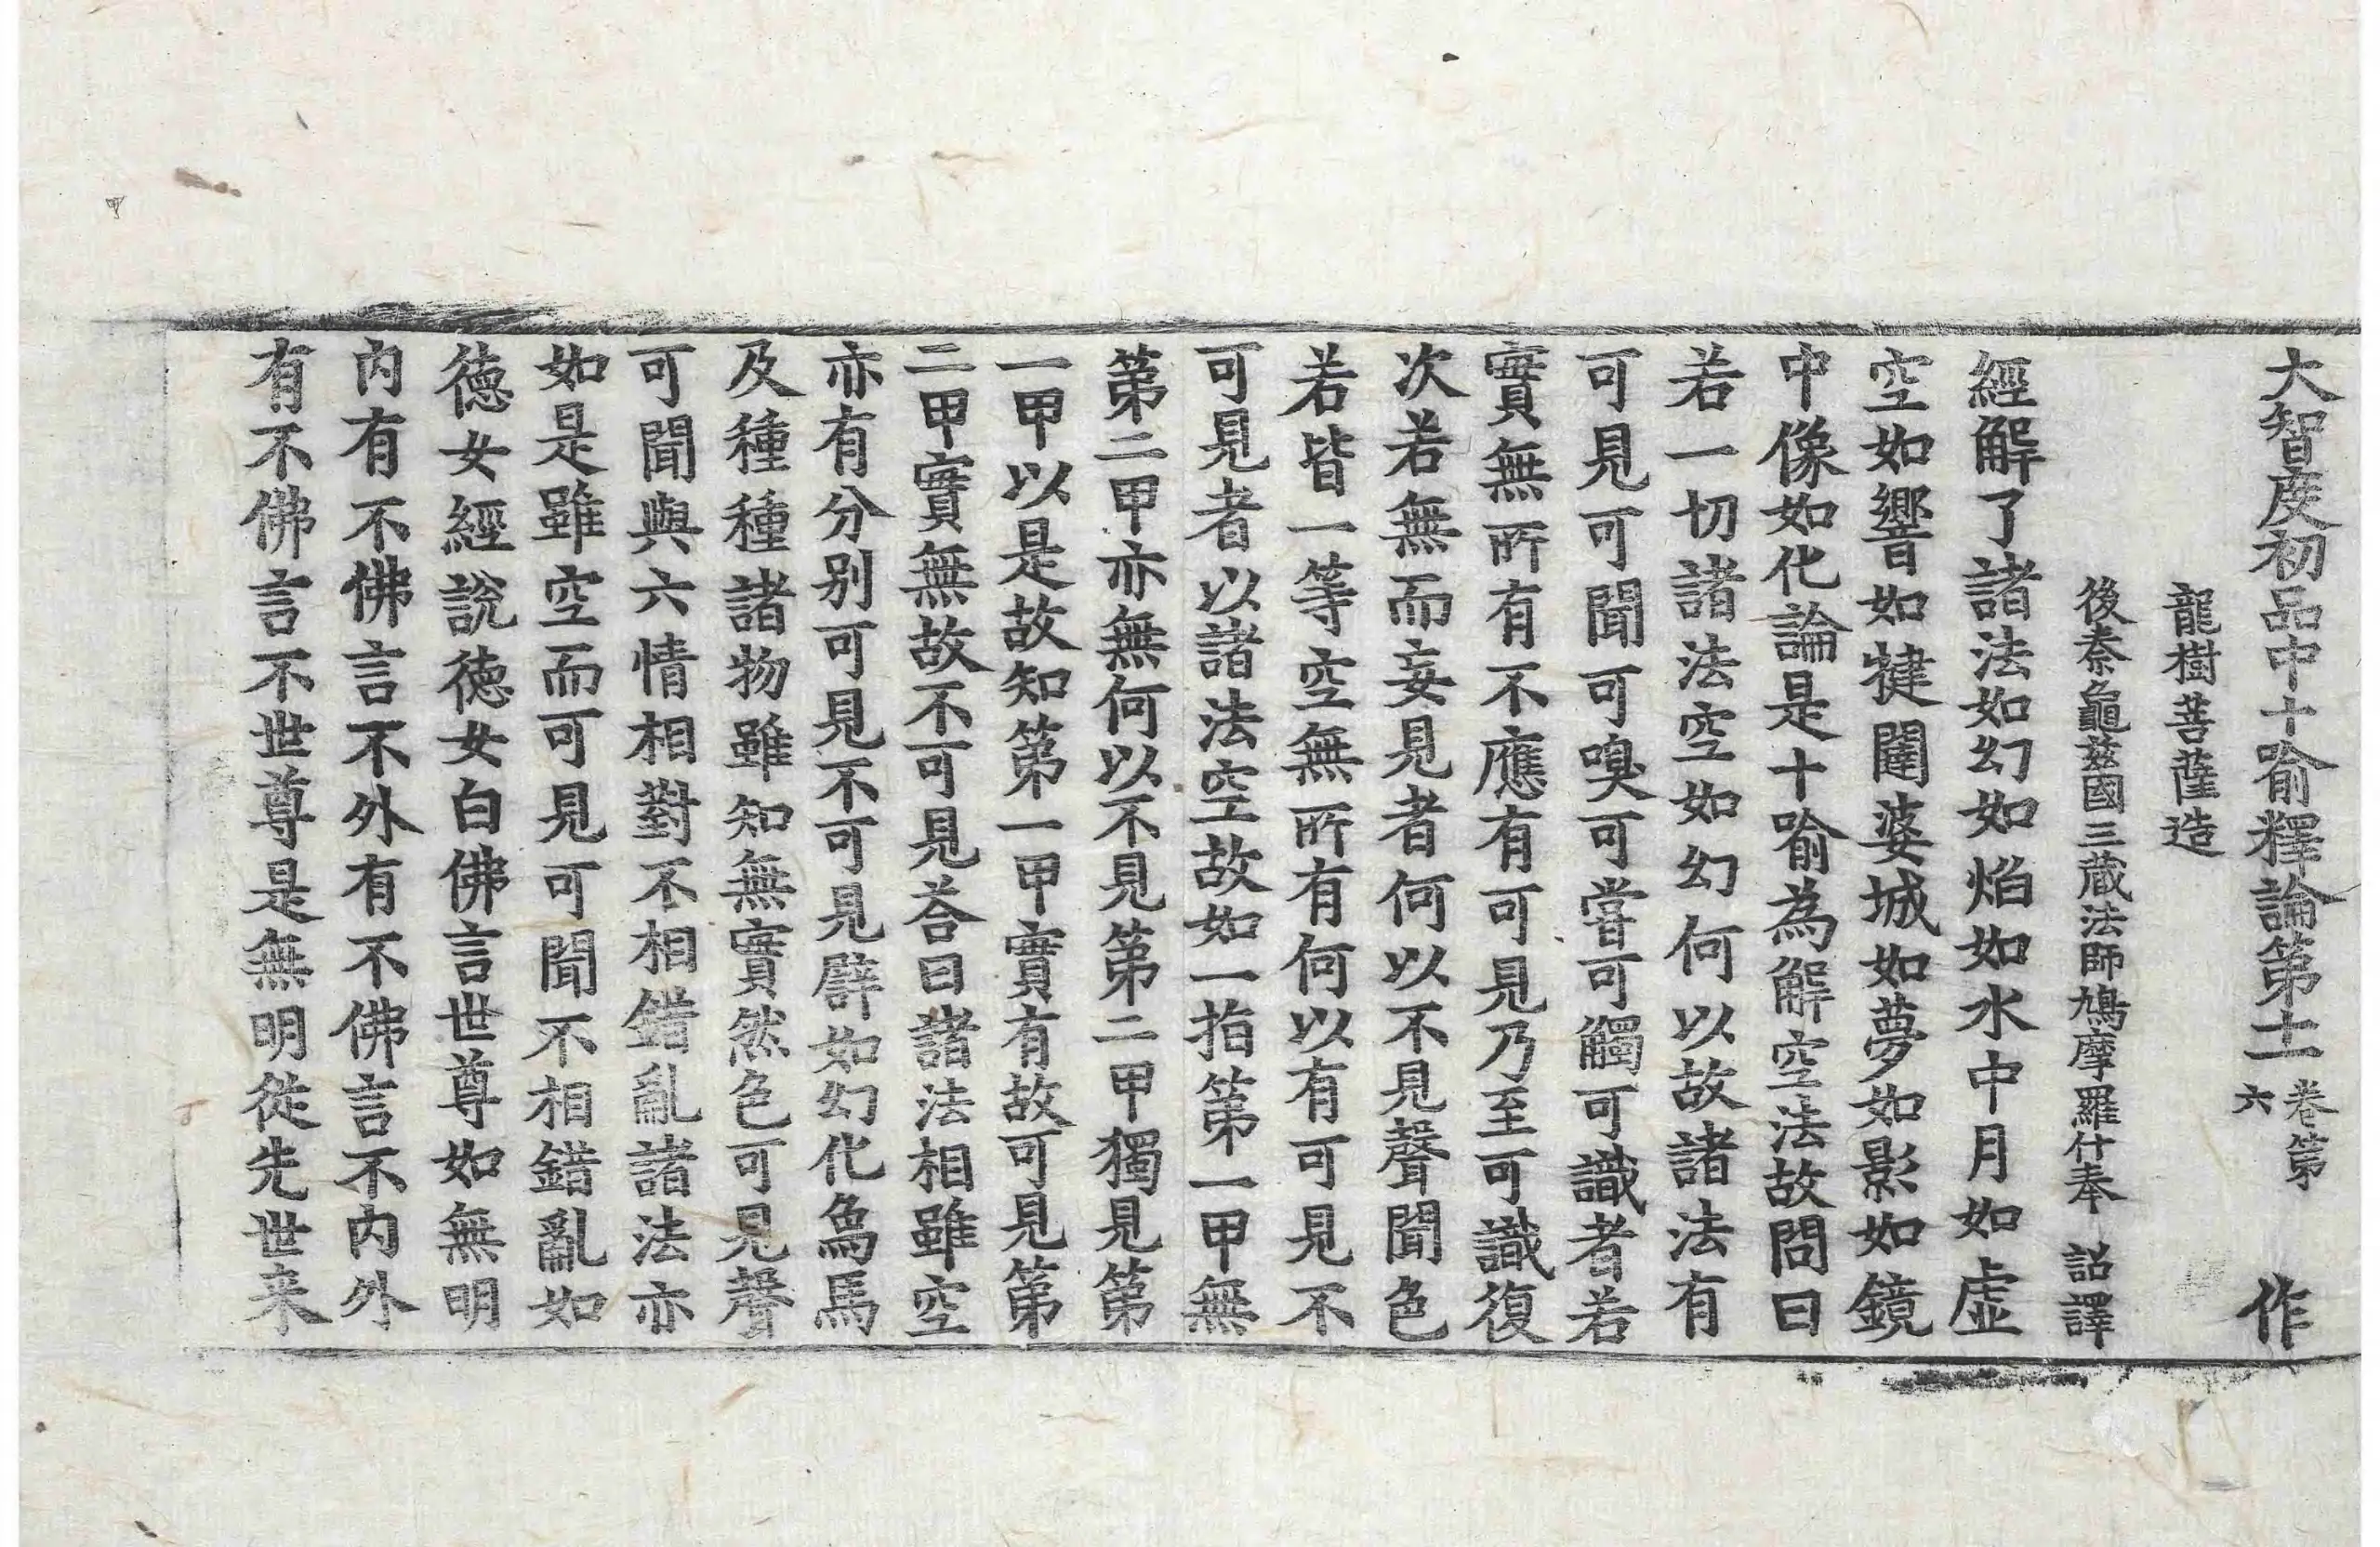 大智度初品中十喻釋論第十一 卷第六 作
龍樹菩薩造
後秦龜茲國三藏法師鳩摩羅什奉 詔譯
經解了諸法如幻如焰如水中月如虛
空如響如揵闥婆城如夢如影如鏡
中像如化論是十喻為解空法故問曰
若一切諸法空如幻何以故諸法有
可見可聞可嗅可甞可觸可識者若
實無所有不應有可見乃至可識復
次若無而妄見者何以不見聲聞色
若皆一等空無所有何以有可見不
可見者以諸法空故如一指第一甲無
第二甲亦無何以不見第二甲獨見第
一甲以是故知第一甲實有故可見第
二甲實無故不可見荅曰諸法相雖空
亦有分別可見不可見譬如幻化象馬
及種種諸物雖知無實然色可見聲
可聞與六情相對不相錯亂諸法亦
如是雖空而可見可聞不相錯亂如
德女經說德女白佛言世尊如無明
內有不佛言不外有不佛言不內外
有不佛言不世尊是無明從先世来